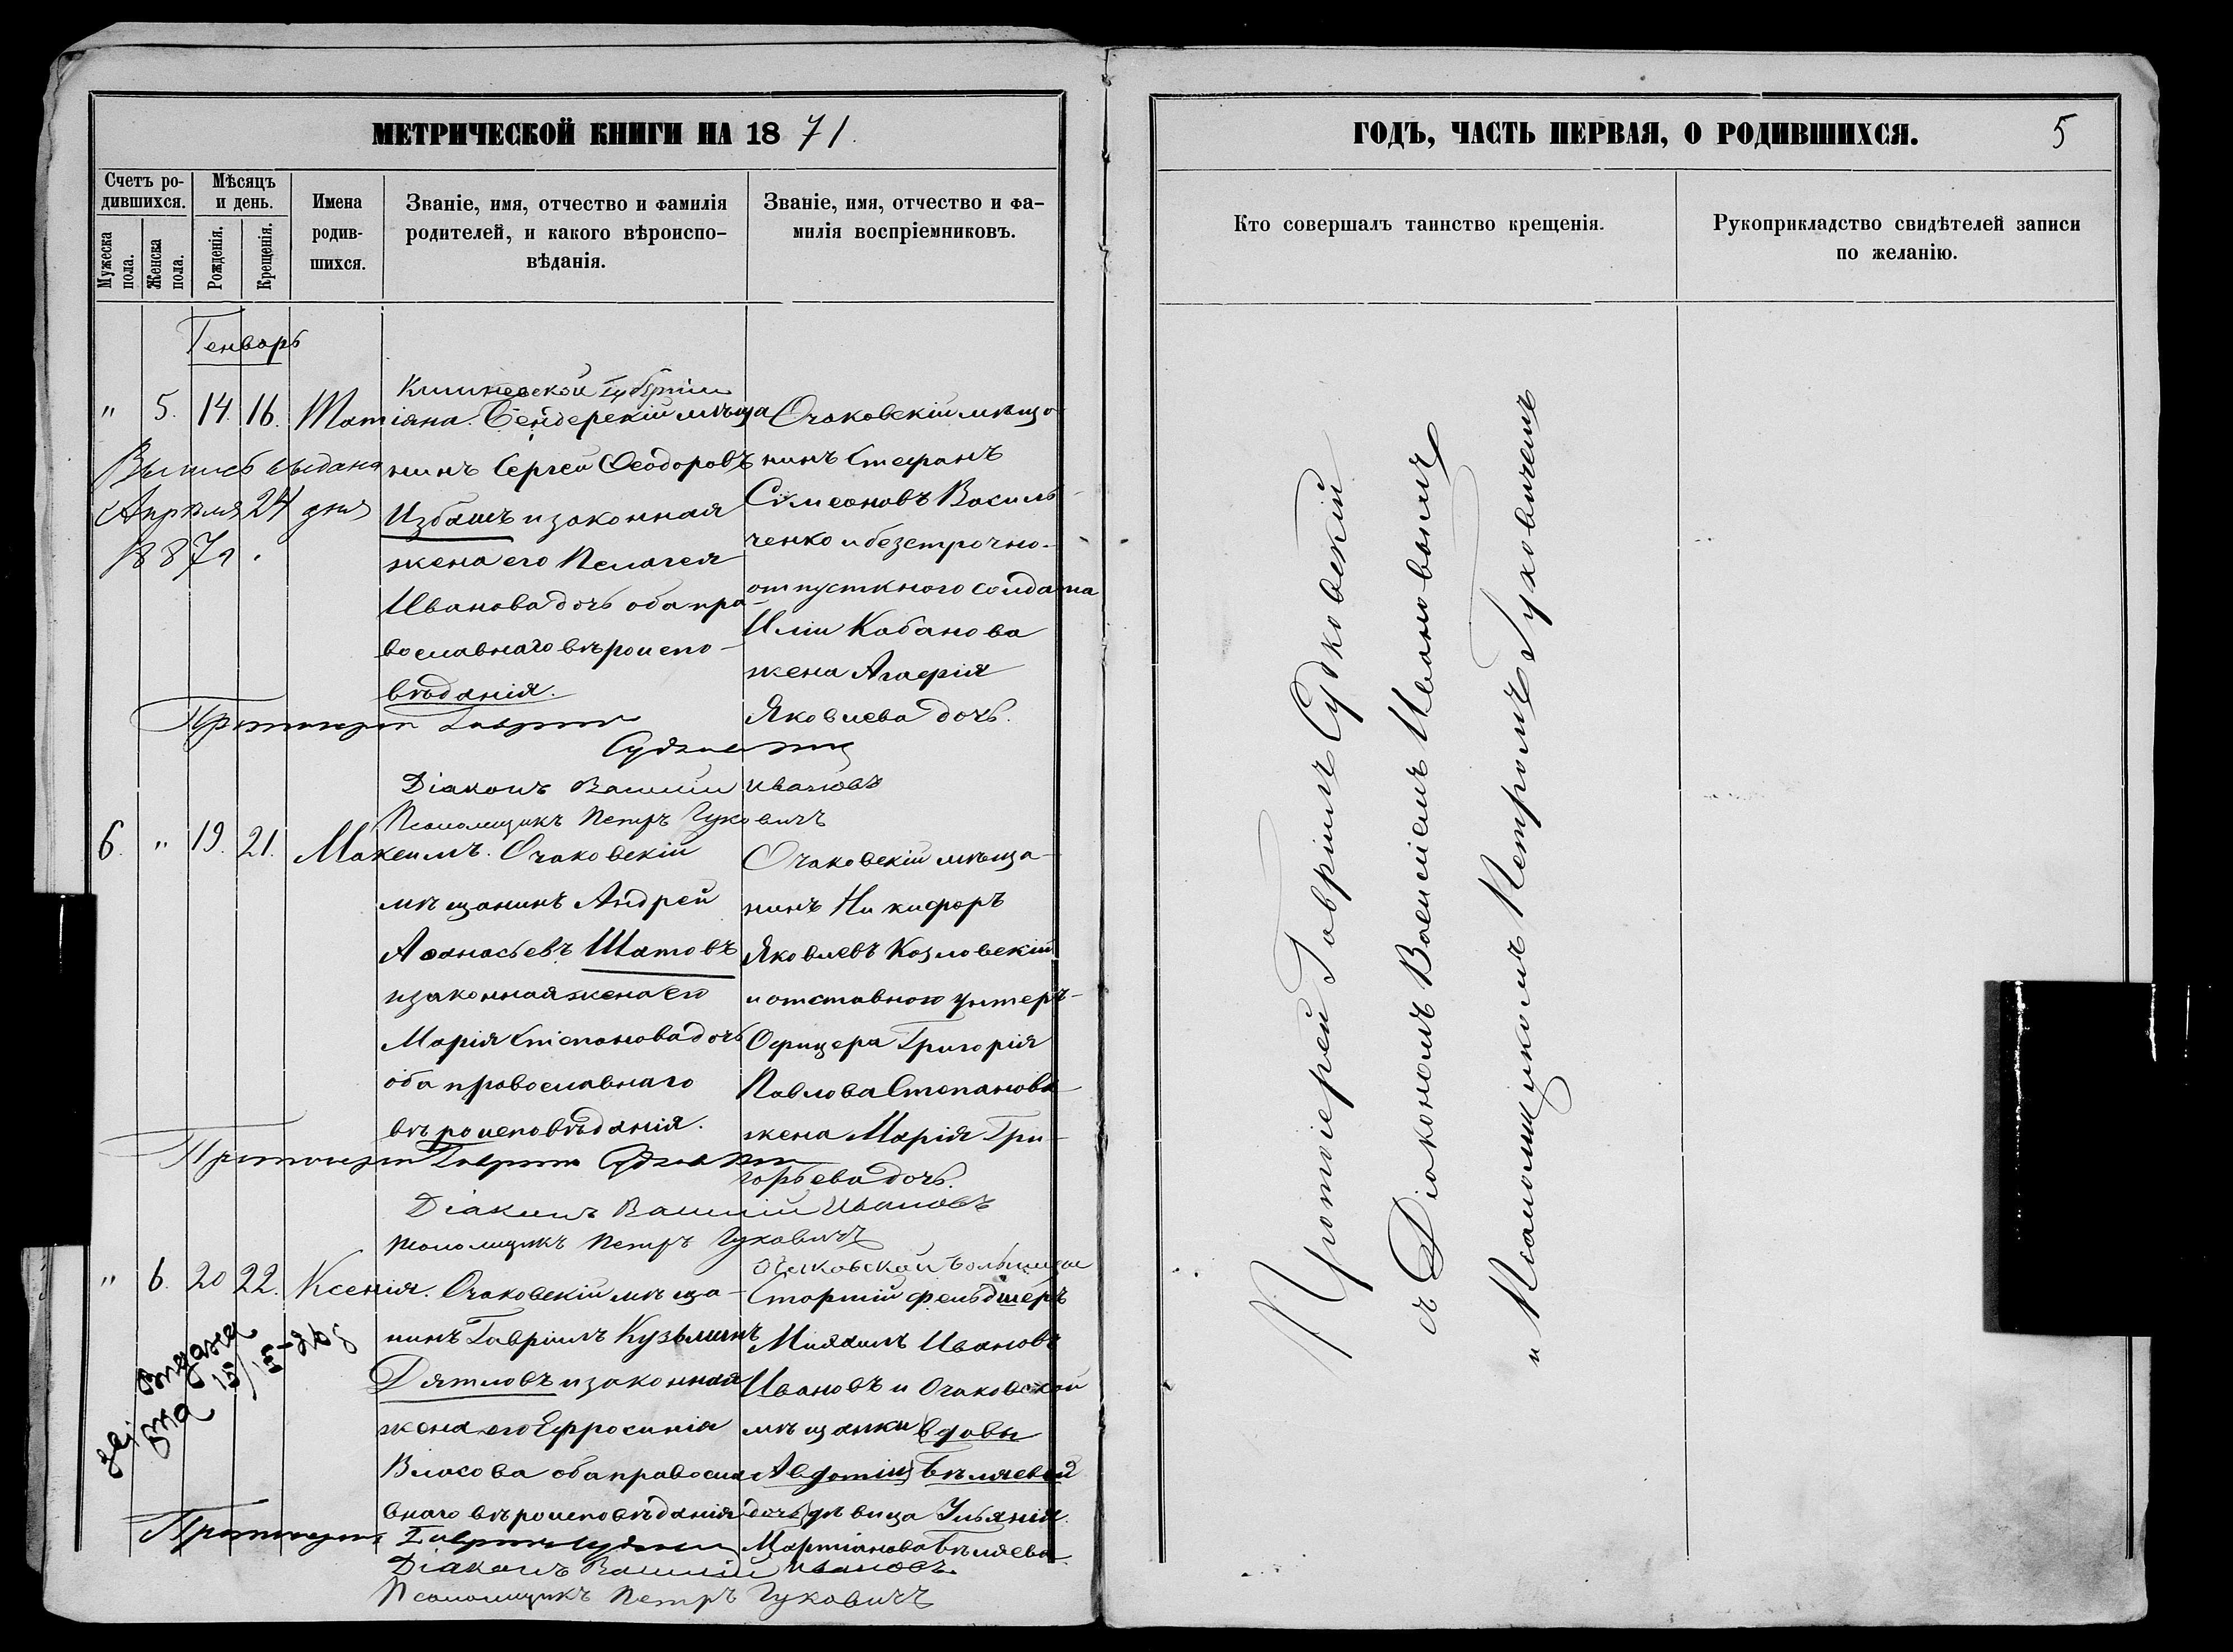 МЕТРИЧЕСКОЙ КНИГИ НА 1871.
Счетъ ро-
дившихся.
Мужеска пола.
Женска пола.
Мѣсяцъ
и день.
Рожденія.
Крещенія.
Имена
родив-
шихся.
Званіе, имя, отчество и фамилія
родителей, и какого вѣроиспо-
вѣданія.
Званіе, имя, отчество и фа-
милія воспріемниковъ.
Генварь
" 5. 14. 16. Татіана.
Выпись выдана
Апрѣля 24 дня
1887г.
Кишневской губерніи
Бендерскій мѣща
нинъ Сергей Ѳеодоровъ
Избашъ и законная
жена его Пелагея
Иванова дочь оба пра-
вославнаго вѣроиспо-
вѣданія.
Очаковскій мѣща-
нинъ Стефанъ
Симеоновъ Василь-
ченко и безсрочно-
отпускного солдата
Иліи Кабанова
жена Агафія
Яковлева дочь.
Протоіерей Гавріилъ
Судковскій
Діаконъ Василій Ивановъ
Псаломщикъ Петръ Гуковичъ
6. " 19. 21. Максимъ.
Очаковскій
мѣщанинъ Андрей
Аѳанасьевъ Шатовъ
и законная жена его
Марія Степанова дочь
оба православнаго
вѣроисповѣданія.
Очаковскій мѣща-
нинъ Никифоръ
Яковлевъ Козловскій
и отставного унтеръ-
Офицера Григорія
Павлова Степанова
жена Марія Гри-
горьева дочь.
Протоіерей Гавріилъ Судковскій
Діаконъ Василій Ивановъ
Псаломщикъ Петръ Гуковичъ
" 6. 20 22. Ксенія.
выдана
Очаковскій мѣща-
нинъ Гавріилъ Кузьминъ
Дятловъ и законная
жена его Ефросинія
Власова оба правосла
внаго вѣроисповѣданія
Очаковской больницы
Старшій фельдшеръ
Михаилъ Ивановъ
Ивановъ и Очаковской
мѣщанки вдовы
Авдотіи Бѣляевой
дочь дѣвица Ульянія
Мартіанова Бѣляева.
Протоіерей Гавріилъ Судковскій
Діаконъ Василій Ивановъ.
Псаломщикъ Петръ Гуковичъ
ГОДЪ, ЧАСТЬ ПЕРВАЯ, О РОДИВШИХСЯ. 5
Кто совершалъ таинство крещенія.
Рукоприкладство свидѣтелей записи
по желанію.
Протоіерей Гавріилъ Судковскій
съ Діакономъ Василіемъ Ивановымъ
и Псаломщикомъ Петромъ Гуковичемъ